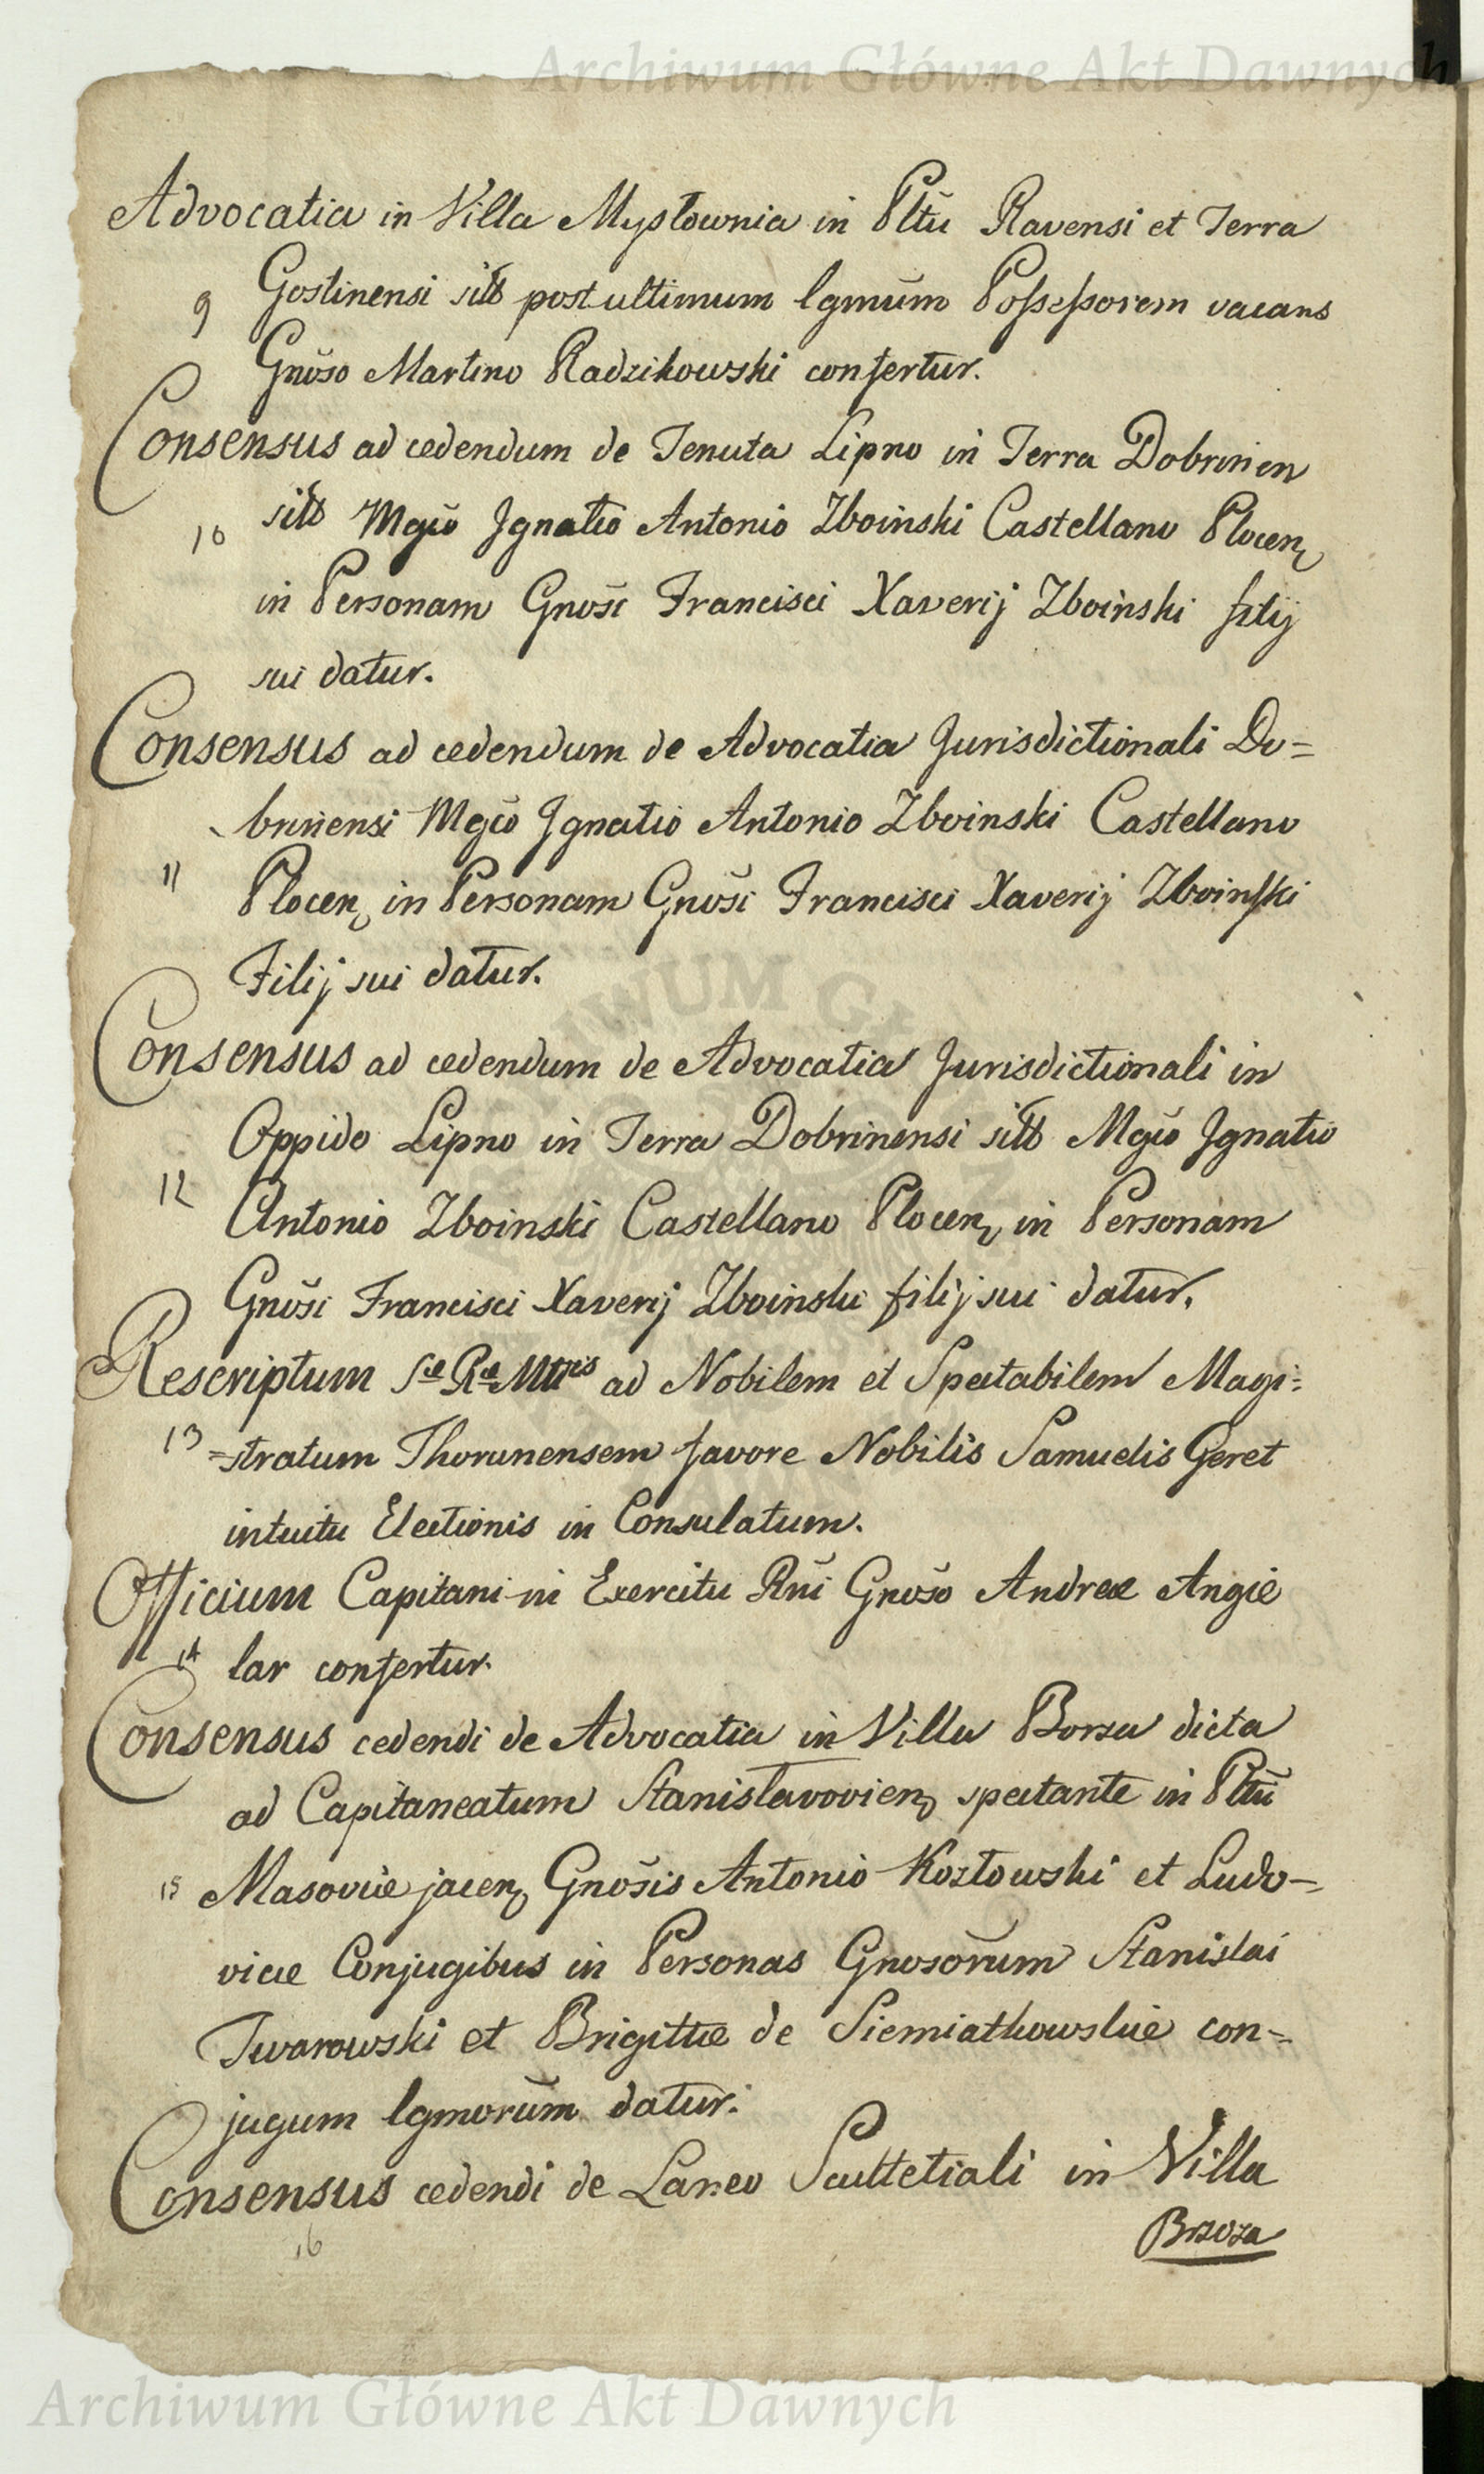 Archiwum Główne Akt Dawnych
Advocatia in Villa Mysłownia in Pltũ Ravensi et Terra
9 Gostinensi sitt post ultimum lgmũm Possessorem vacans
Gnõso Martino Radzikowski confertur.
Consensus ad cedendum de Tenuta Lipno in Terra Dobrinen
10 sitt Mgco Ignatio Antonio Zboinski Castellano Plocen
in Personam Gnosi Francisci Xaverij Zboinski filij
sui datur.
Consensus ad cedendum de Advocatia Jurisdictionali Do=
brinensi Mgco Ignatio Antonio Zboinski Castellano
11 Plocen in Personam Gnosi Francisci Xaverij Zboinski
Filij sui datur.
Consensus ad cedendum de Advocatia Jurisdictionali in
Oppido Lipno in Terra Dobrinensi sitt Mgco Ignatio
12 Antonio Zboinski Castellano Plocen in Personam
Gnosi Francisci Xaverij Zboinski filij sui datur.
Rescriptum Sae Rae Mttis ad Nobilem et Spectabilem Magi=
13 =stratum Thorunensem favore Nobilis Samuelis Geret
intuitu Electionis in Consulatum.
Officium Capitani in Exercitu Rni Gnoso Andreæ Angie
14 lar confertur.
Consensus cedendi de Advocatia in Villa Borza dicta
ad Capitaneatum Stanislavovien spectante in Pltũ
15 Masoviæ jacen Gnosis Antonio Kozłowski et Ludo-
vicæ Conjugibus in Personas Gnosorum Stanislai
Twarowski et Brigittæ de Siemiatkowskie con=
jugum lgmorum datur.
Consensus cedendi de Laneo Scultetiali in Villa
16
Brzoza
Archiwum Główne Akt Dawnych